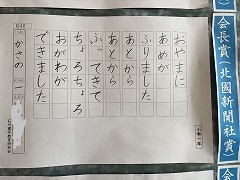 会長賞(北國新聞社賞)
小学一年
おやまに
あめが
ふりました
あとから
あとから
ふってきて
ちょろちょろ
おがわが
できました
かさの 一